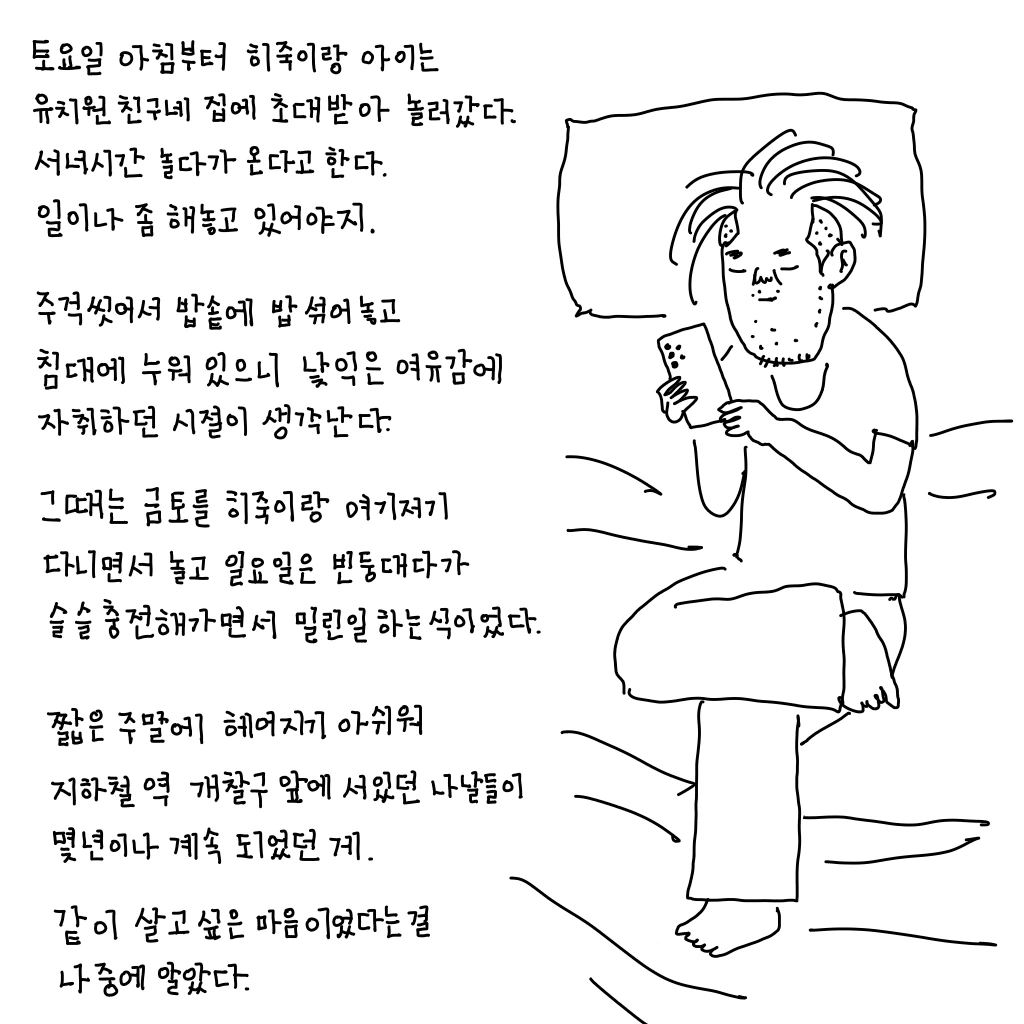 토요일 아침부터 히죽이랑 아이는
유치원 친구네 집에 초대받아 놀러갔다.
서녀시간 놀다가 온다고 한다.
일이나 좀 해놓고 있어야지.
주걱씻어서 밥솥에 밥 섞어놓고
침대에 누워 있으니 낯익은 여유감에
자취하던 시절이 생각난다.
그때는 금토를 히죽이랑 여기저기
다니면서 놀고 일요일은 빈둥대다가
슬슬 충전해가면서 밀린일 하는식이었다.
짧은 주말에 헤어지기 아쉬워
지하철 역 개찰구 앞에 서있던 나날들이
몇년이나 계속 되었던 게.
같이 살고싶은 마음이었다는걸
나중에 알았다.